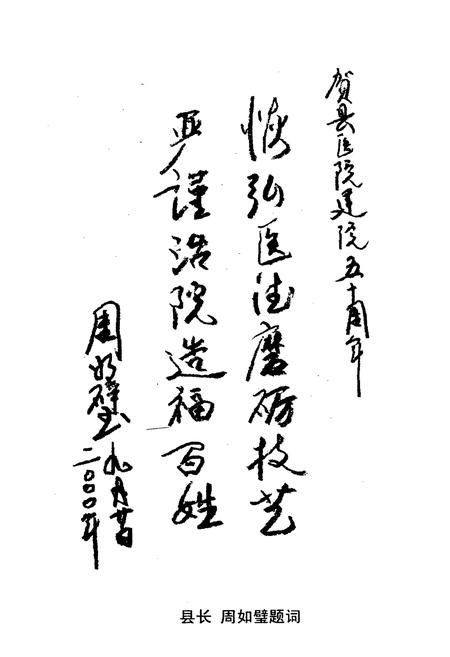 贺县医院建院五十周年
恢弘医德磨砺技艺
严谨治院造福百姓
周如璧
二〇〇〇年
九月廿日
县长 周如璧题词